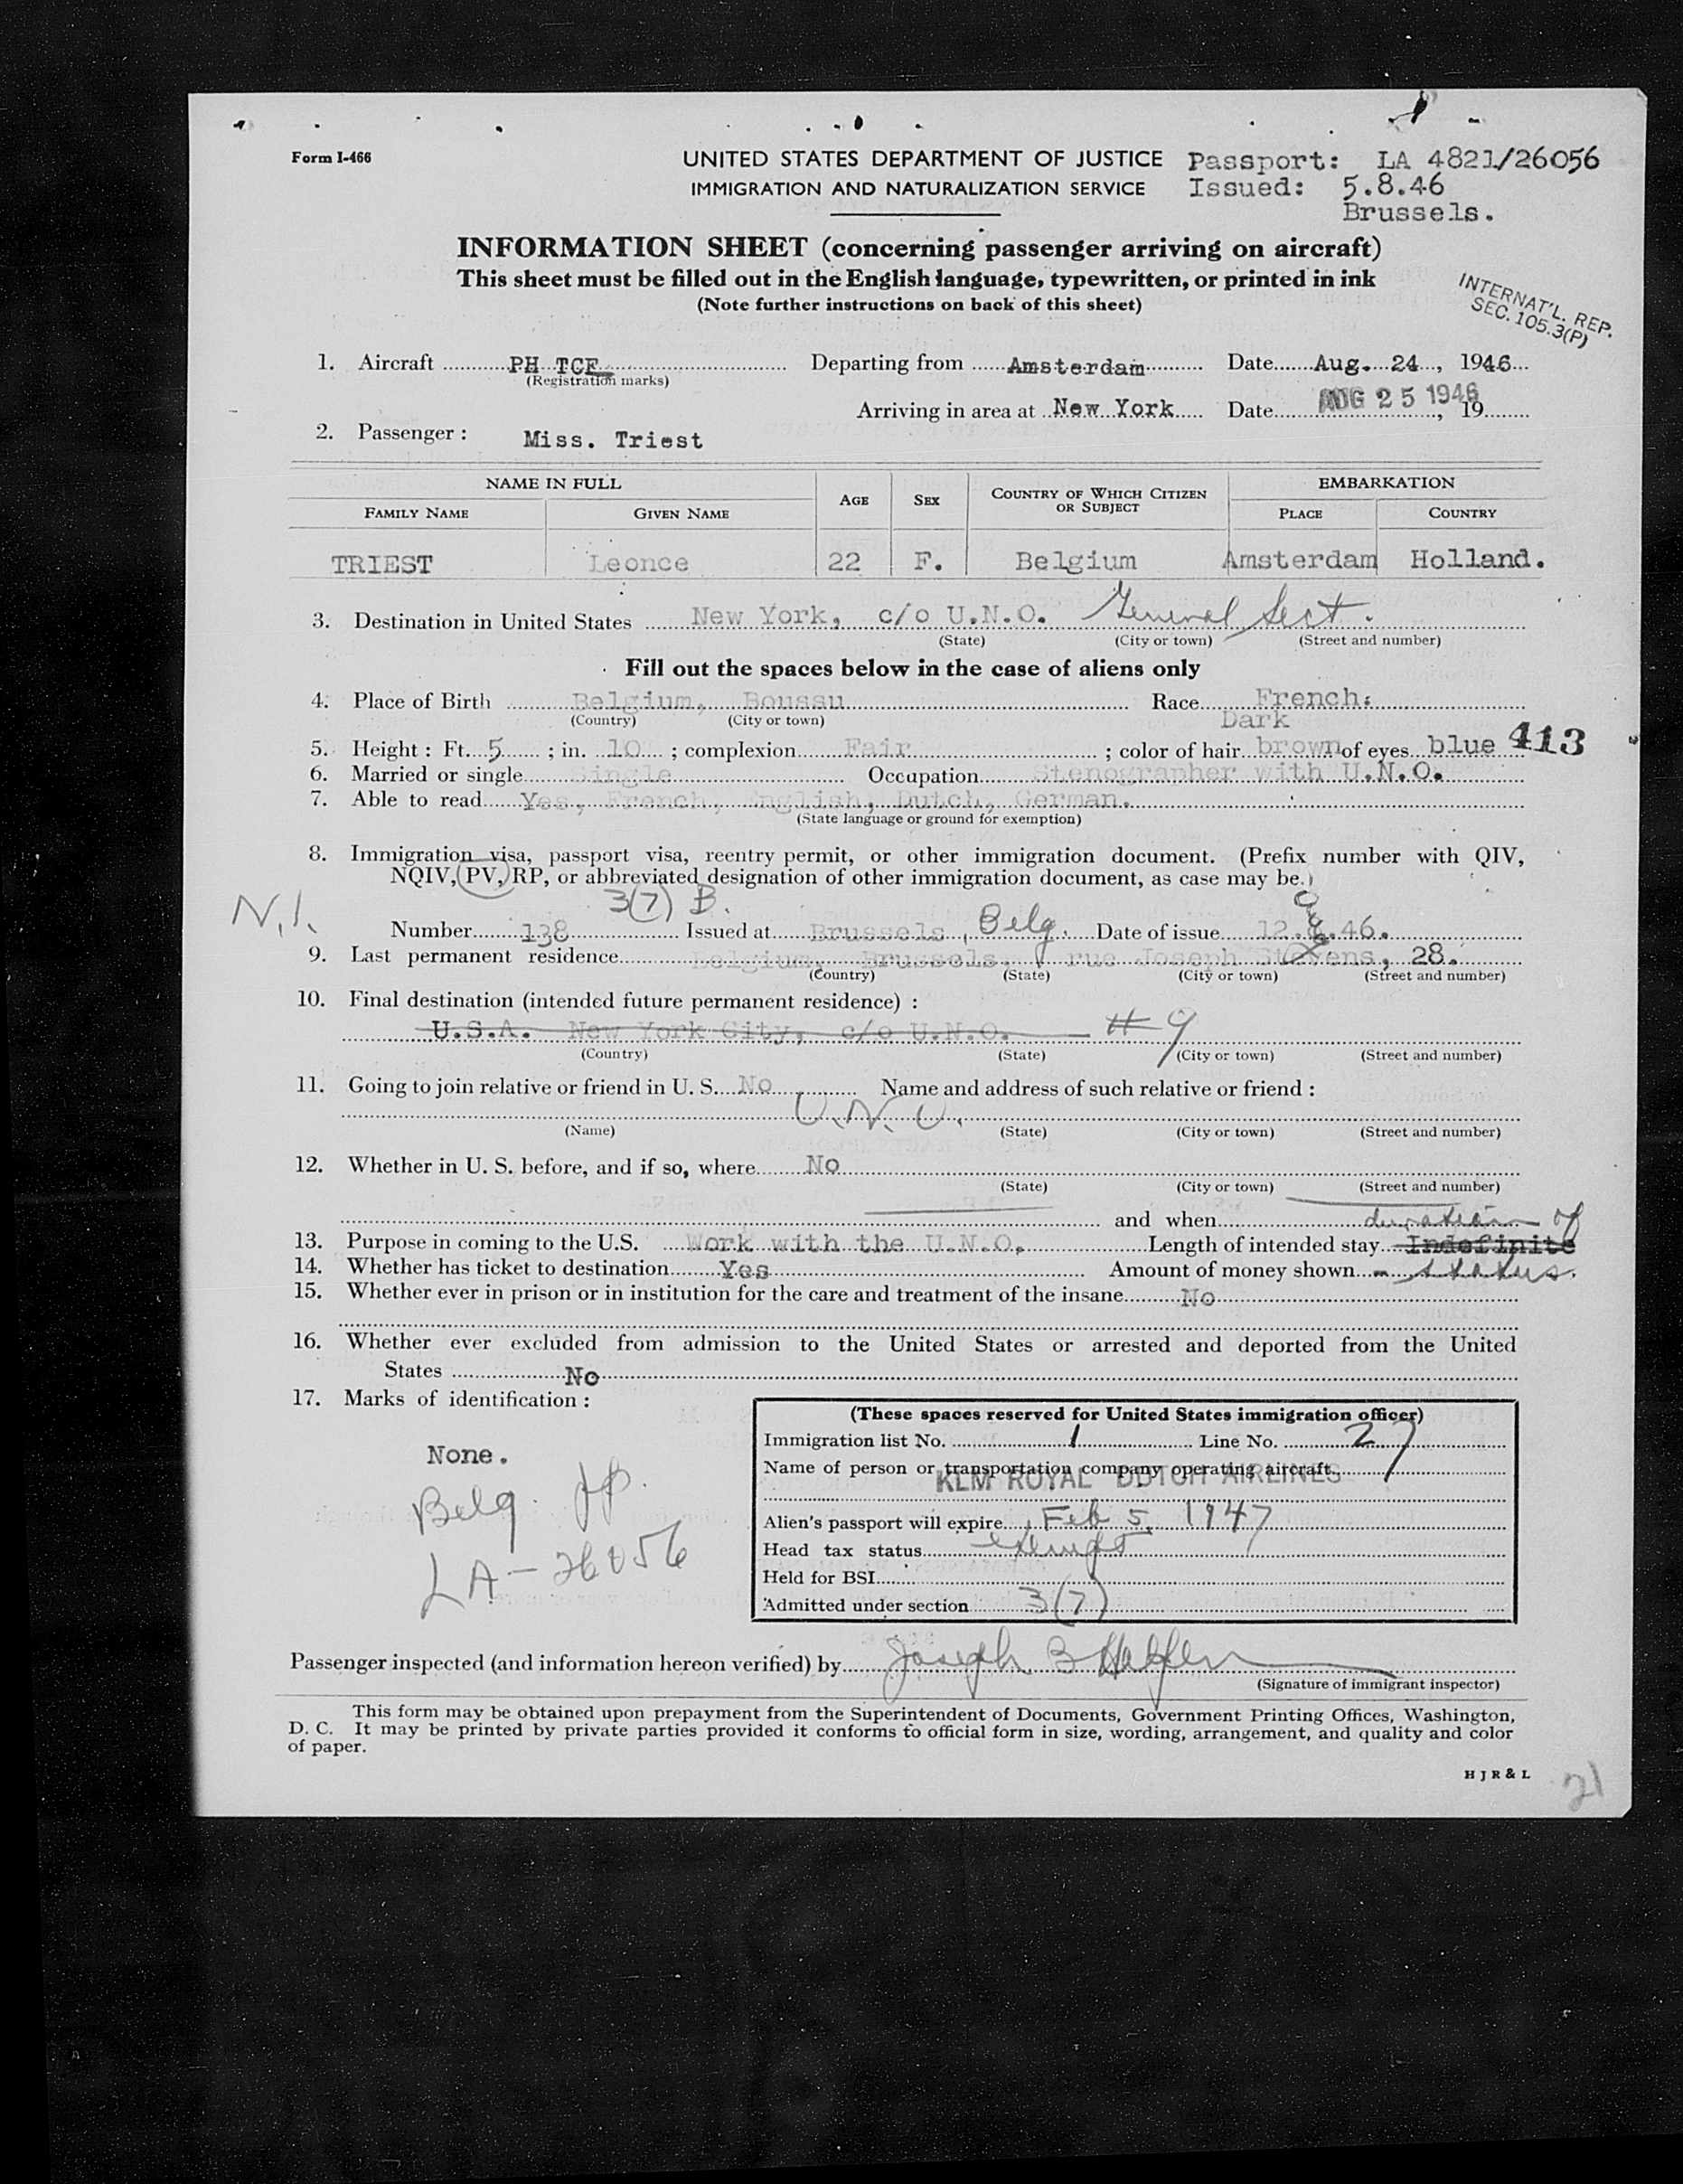 Form I-466
UNITED STATES DEPARTMENT OF JUSTICE
IMMIGRATION AND NATURALIZATION SERVICE
Passport: LA 4821/26056
Issued: 5.8.46
Brussels.
INFORMATION SHEET (concerning passenger arriving on aircraft)
This sheet must be filled out in the English language, typewritten, or printed in ink
(Note further instructions on back of this sheet)
INTERNAT'L. REP.
SEC. 105.3(P)
1. Aircraft PH TCF Departing from Amsterdam Date Aug. 24, 1946
(Registration marks)
Arriving in area at New York Date AUG 25 1946, 19
2. Passenger : Miss. Triest
NAME IN FULL AGE SEX COUNTRY OF WHICH CITIZEN OR SUBJECT EMBARKATION
FAMILY NAME GIVEN NAME PLACE COUNTRY
TRIEST Leonce 22 F. Belgium Amsterdam Holland.
3. Destination in United States New York, c/o U.N.O. General Sect.
(State) (City or town) (Street and number)
Fill out the spaces below in the case of aliens only
4. Place of Birth Belgium, Boussu Race French.
(Country) (City or town)
Dark
5. Height : Ft. 5 ; in. 10 ; complexion Fair ; color of hair brown of eyes blue 413
6. Married or single Single Occupation Stenographer with U.N.O.
7. Able to read Yes, French, English, Dutch, German.
(State language or ground for exemption)
8. Immigration visa, passport visa, reentry permit, or other immigration document. (Prefix number with QIV,
NQIV, PV, RP, or abbreviated designation of other immigration document, as case may be.)
N.I. 3(7) B.
Number 138 Issued at Brussels, Belg. Date of issue 12.8.46.
9. Last permanent residence Belgium, Brussels, rue Joseph Stevens, 28.
(Country) (State) (City or town) (Street and number)
10. Final destination (intended future permanent residence) :
U.S.A. New York City, c/o U.N.O. # 9
(Country) (State) (City or town) (Street and number)
11. Going to join relative or friend in U. S. No Name and address of such relative or friend :
U.N.O.
(Name) (State) (City or town) (Street and number)
12. Whether in U. S. before, and if so, where No
(State) (City or town) (Street and number)
and when
duration of
13. Purpose in coming to the U.S. Work with the U.N.O. Length of intended stay Indefinite
14. Whether has ticket to destination Yes Amount of money shown - status.
15. Whether ever in prison or in institution for the care and treatment of the insane No
16. Whether ever excluded from admission to the United States or arrested and deported from the United
States No
17. Marks of identification :
None.
Belg. pp.
LA-26056
(These spaces reserved for United States immigration officer)
Immigration list No. 1 Line No. 27
Name of person or transportation company operating aircraft
KLM ROYAL DUTCH AIRLINES
Alien's passport will expire Feb 5, 1947
Head tax status exempt
Held for BSI
Admitted under section 3(7)
Passenger inspected (and information hereon verified) by Joseph B
(Signature of immigrant inspector)
This form may be obtained upon prepayment from the Superintendent of Documents, Government Printing Offices, Washington,
D. C. It may be printed by private parties provided it conforms to official form in size, wording, arrangement, and quality and color
of paper.
H J R & L
21